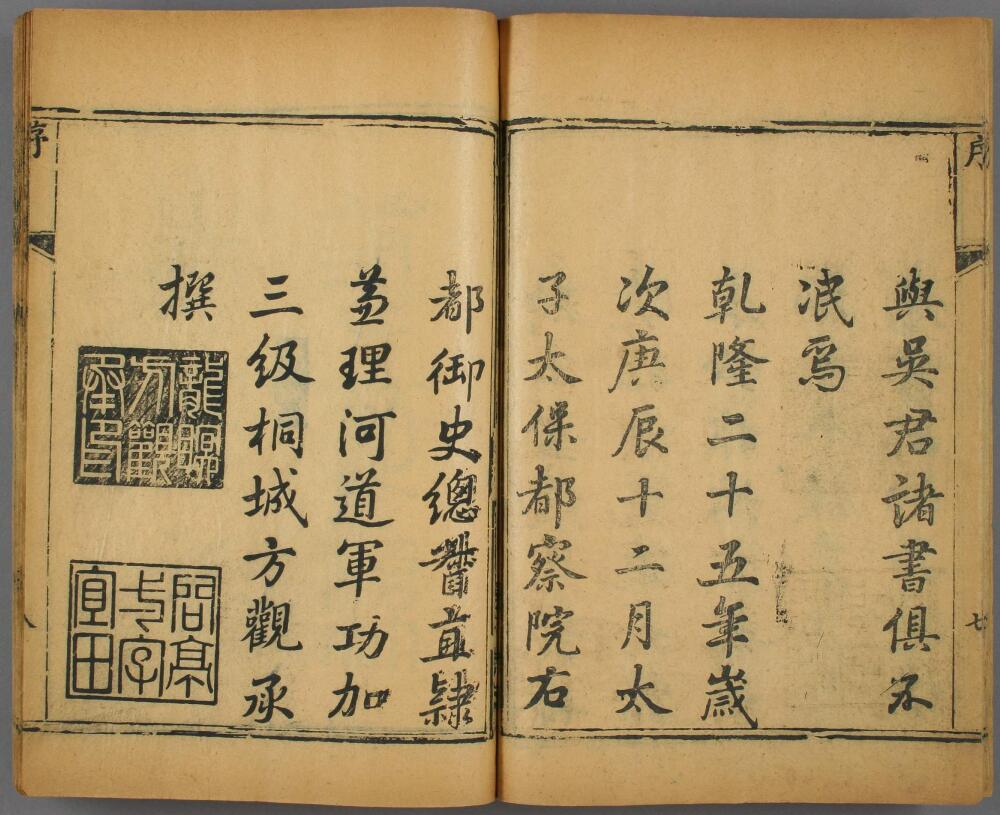 序
七
與吳君諸書俱不
泯焉
乾隆二十五年歲
次庚辰十二月太
子太保都察院右
都御史總督直隸
兼理河道軍功加
三級桐城方觀承
撰
龍眠
方觀
承印
問亭
字
宜田
序